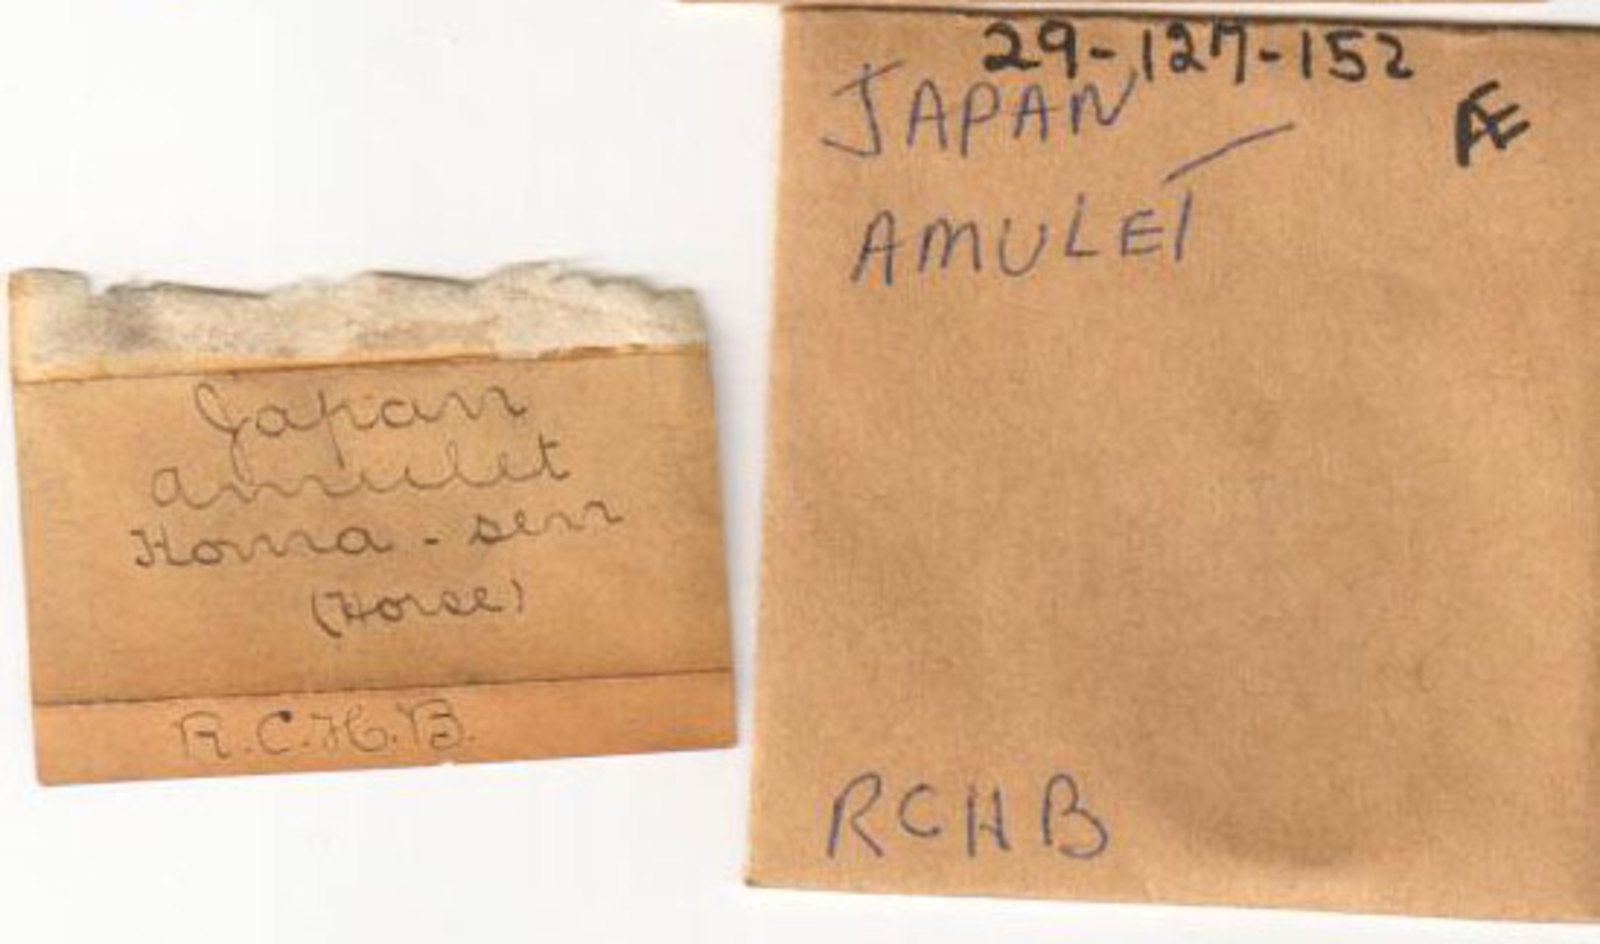 Japan
amulet
Homa - sen
(Horse)
R.C.H.B.
29-127-152
JAPAN
Æ
AMULET
RCHB